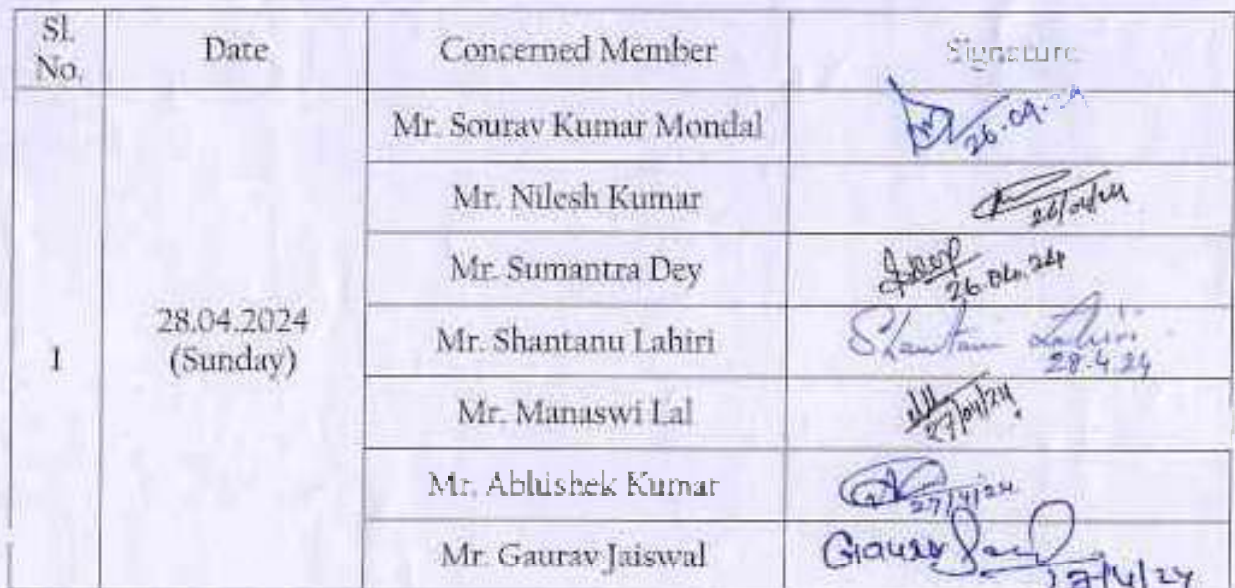 Sl. No. Date Concerned Member Signature
Mr. Sourav Kumar Mondal 26.04.24
Mr. Nilesh Kumar 26/04/24
Mr. Sumantra Dey 26.04.24
1 28.04.2024 (Sunday) Mr. Shantanu Lahiri Shantanu Lahiri 28.4.24
Mr. Manaswi Lal 27/04/24
Mr. Abhishek Kumar 27/4/24
Mr. Gaurav Jaiswal Gaurav 27/4/24